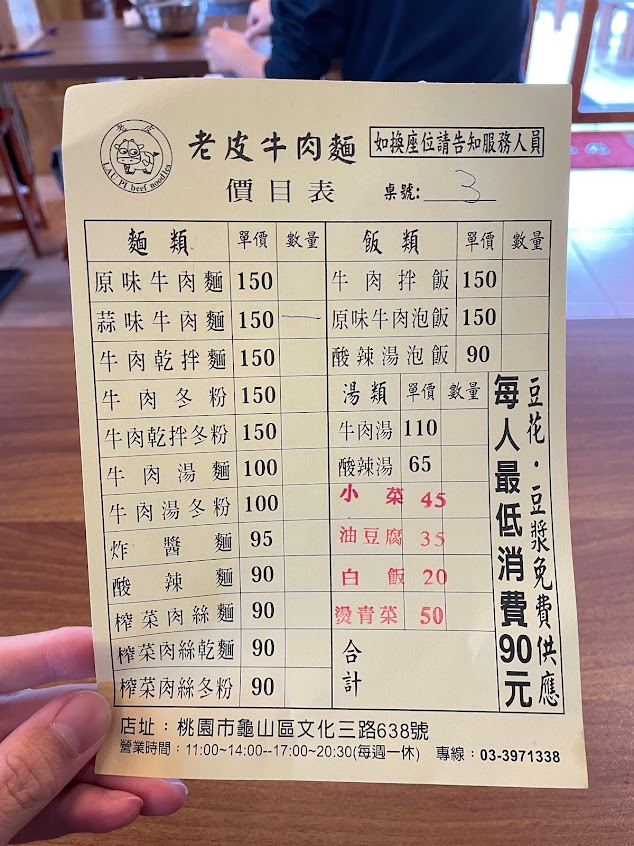 老皮
LAU PI beef noodles
老皮牛肉麵
如換座位請告知服務人員
價目表
桌號: 3
麵類 單價 數量
原味牛肉麵 150
蒜味牛肉麵 150 一
牛肉乾拌麵 150
牛肉冬粉 150
牛肉乾拌冬粉 150
牛肉湯麵 100
牛肉湯冬粉 100
炸醬麵 95
酸辣麵 90
榨菜肉絲麵 90
榨菜肉絲乾麵 90
榨菜肉絲冬粉 90
飯類 單價 數量
牛肉拌飯 150
原味牛肉泡飯 150
酸辣湯泡飯 90
湯類 單價 數量
牛肉湯 110
酸辣湯 65
小菜 45
油豆腐 35
白飯 20
燙青菜 50
合計
豆花・豆漿免費供應
每人最低消費90元
店址：桃園市龜山區文化三路638號
營業時間：11:00~14:00--17:00~20:30(每週一休) 專線：03-3971338